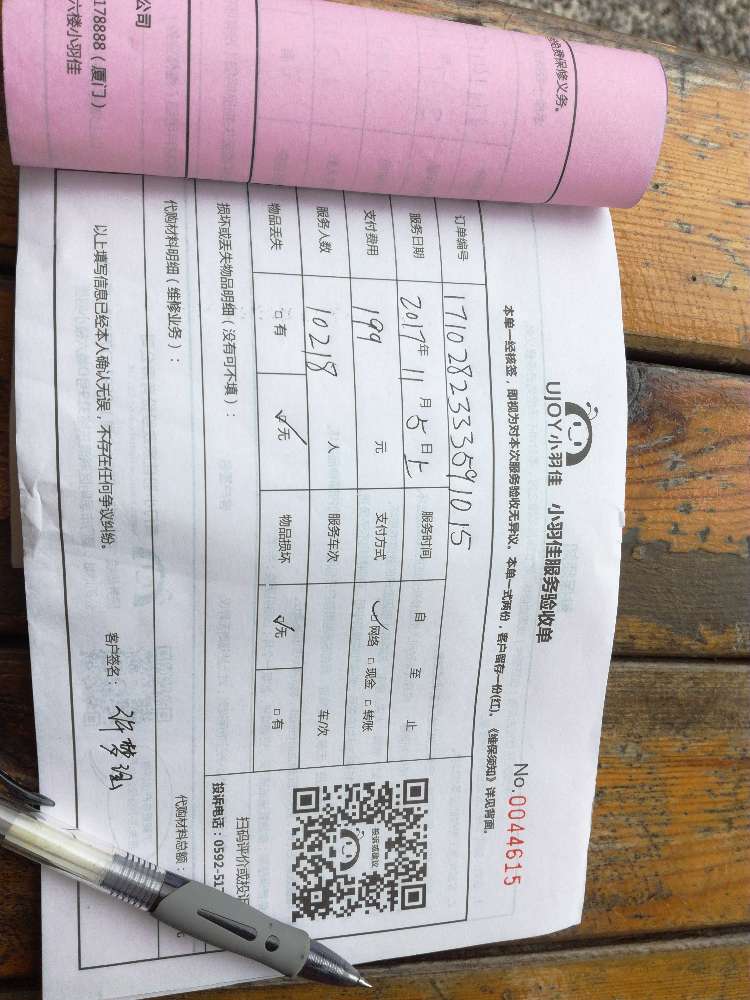 UJOY小羽佳 小羽佳服务验收单
No.0044615
本单一经核签，即视为对本次服务验收无异议。本单一式两份，客户留存一份(红)，《维保须知》详见背面。
订单编号 1710282333591015
服务日期 2017年 11月 5日上 服务时间 自 至 止
支付费用 199 元 支付方式 ☑网络 □现金 □转账
服务人数 10218 人 服务车次 车/次
物品丢失 □有 ☑无 物品损坏 ☑无 □有
损坏或丢失物品明细（没有可不填）：
按诉或建议
扫码评价或投诉
投诉电话：0592-51
代购材料明细（维修业务）：
代购材料总额：
元
以上填写信息已经本人确认无误，不存在任何争议纠纷。
客户签名：
免费保修义务。
公司
178888（厦门）
六楼小羽佳